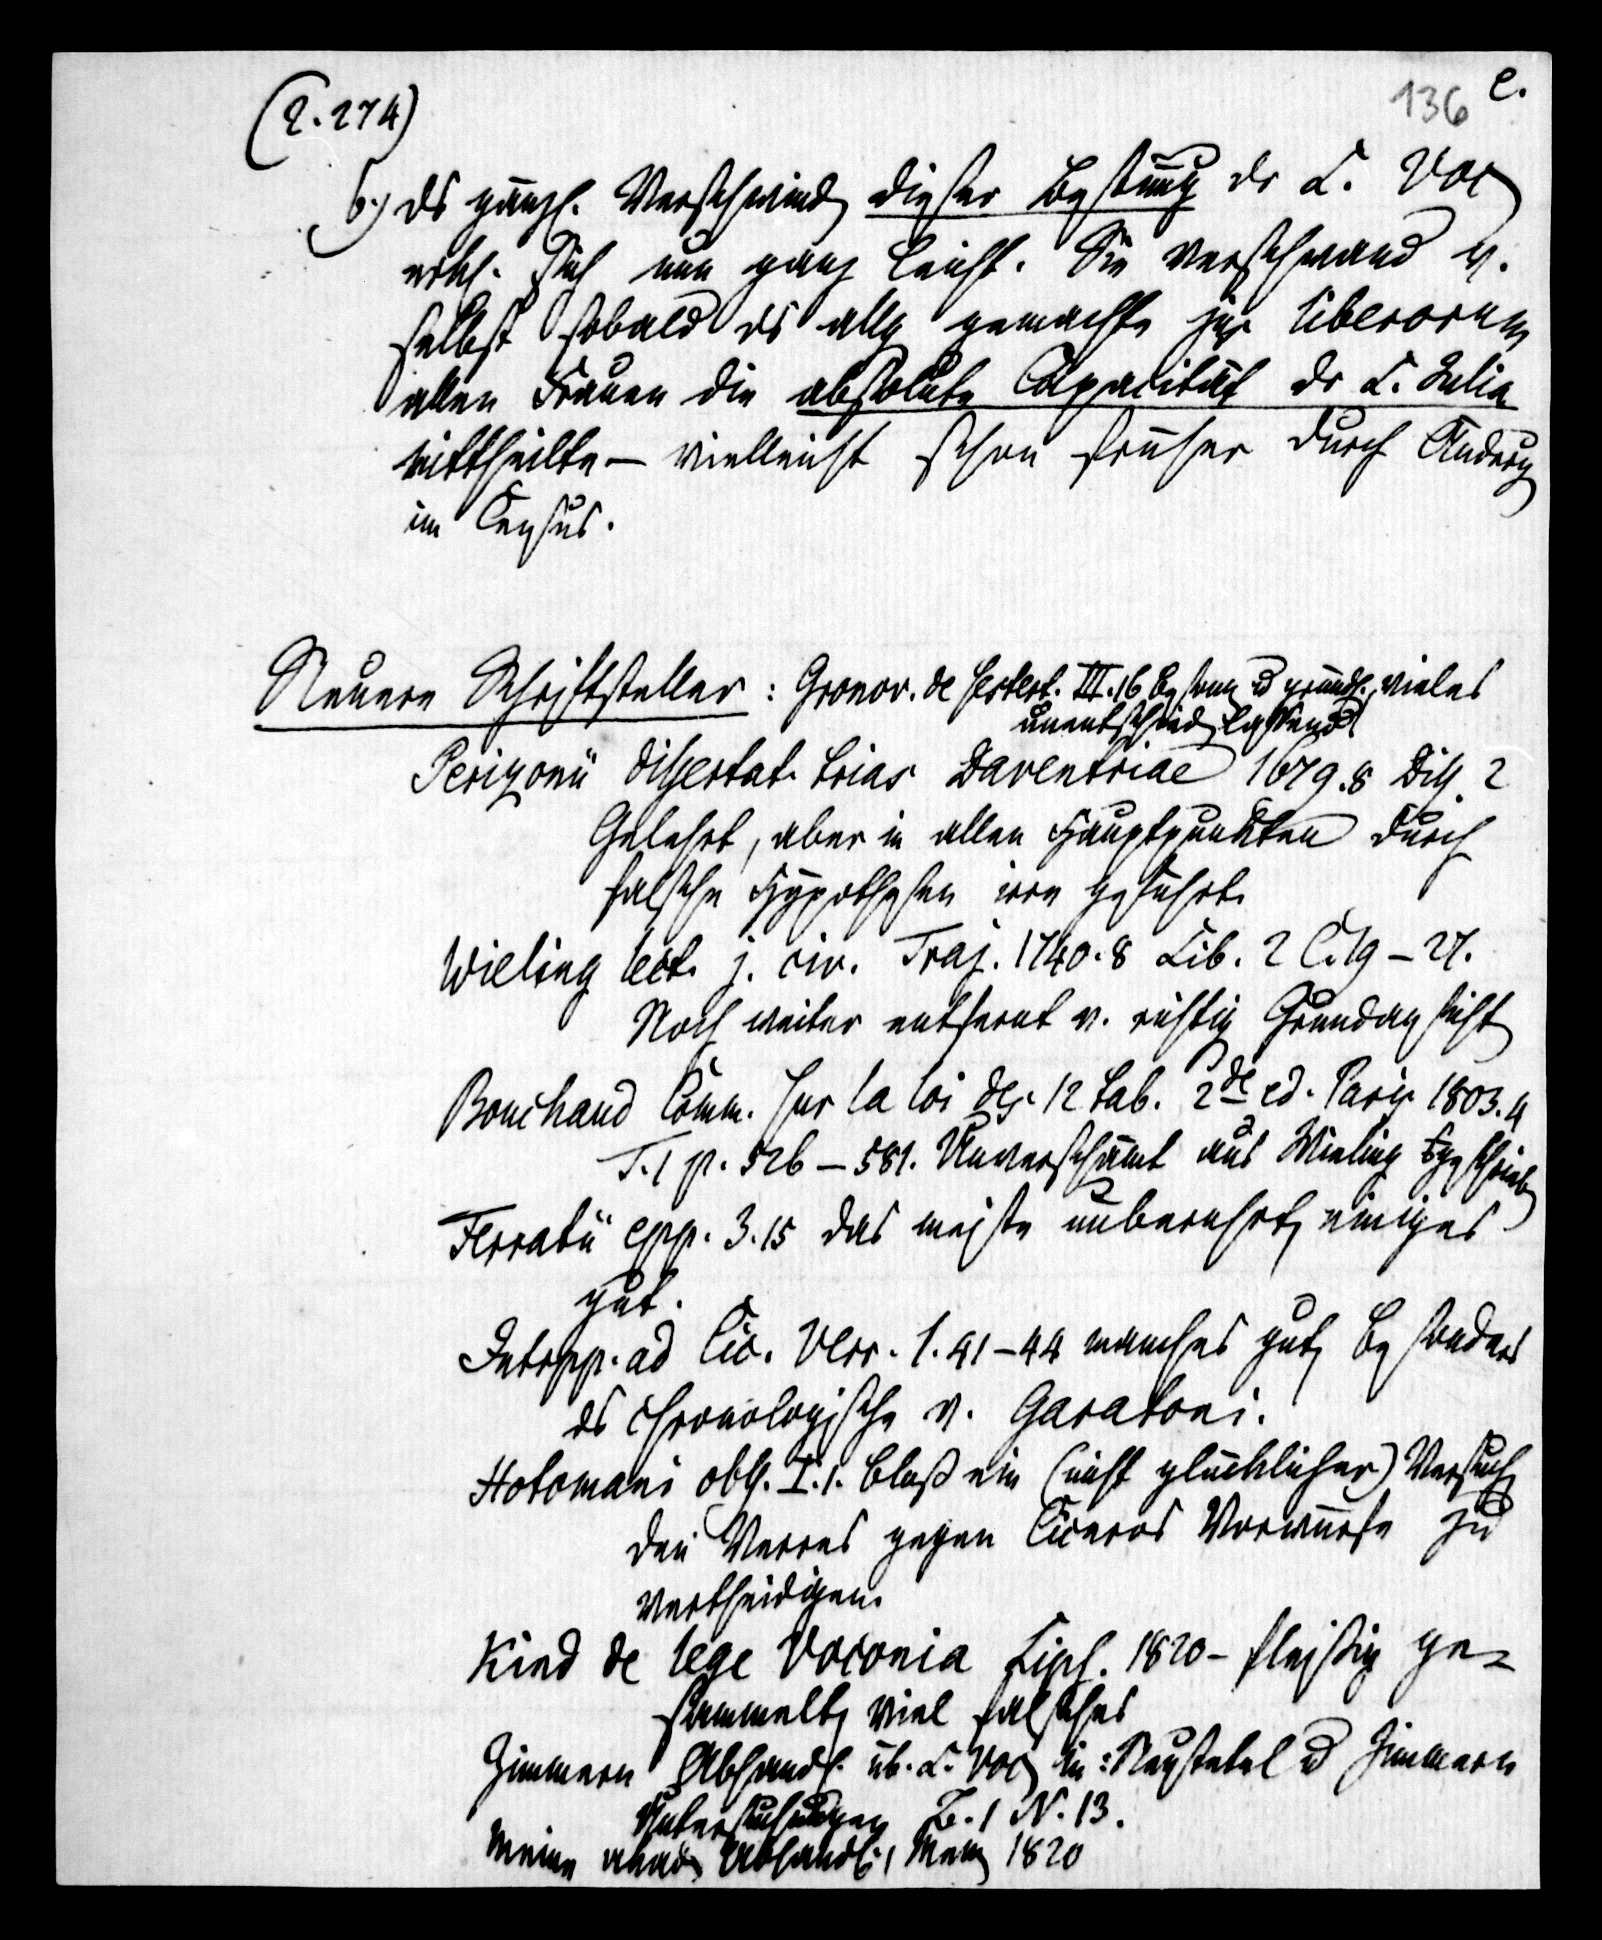 (2.274)
136 e.
b.) ds gänzl. Verschwind dieser Bestimg dr L. Voc
erkl. sich nun ganz leicht. Sie verschwand v.
selbst sobald ds allg gemachte jus liberorum
allen Frauen die absolute Capacität dr L. Julia
mittheilte – vielleicht schon früher durch Änderg
im Census.
Neuere Schriftsteller: Gronov. de sestert. III.16 beson u gründl., vieles
unentschied lassend
Perizonii dissertat. trias Daventriae 1679.8 Diss. 2
Gelehrt, aber in allen Hauptpunkten durch
falsche Hypothesen irre geführt.
Wieling lect. j. civ. Traj. 1740.8 Lib. 2 C. 19–27.
Noch weiter entfernt v. richtig Grundansicht
Bouchaud Comm. sur la loi des 12 tab. 2de ed. Paris 1803.4
T.1 p. 526–581. Unverschämt aus Wieling geschrieb
Ferratii epp. 3.15 das meiste unberührt, einiges
gut.
Intrpp. ad Cic. Verr. 1.41–44 manches gut, besonders
ds chronologische v. Garatoni.
Hotomani obss. I.1. bloß ein (nicht glücklicher) Versuch
den Verres gegen Ciceros Vorwürfe zu
vertheidigen.
Kind de lege Voconia Lips. 1820 – fleissig ge-
sammelt, viel falsches
Zimmern Abhandl. üb. L. Voc in: Neustetel u Zimmern
Untersuchungen B. 1 N. 13.
Meine akad. Abhandl., 1820